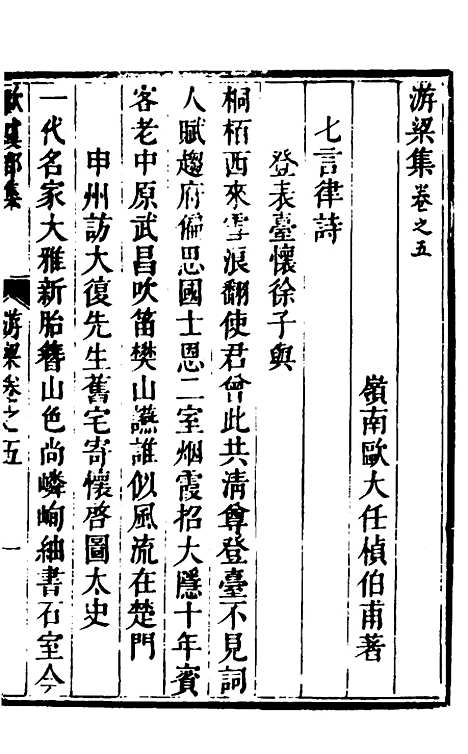 游梁集卷之五
嶺南歐大任楨伯甫著
七言律詩
登表臺懷徐子與
桐栢西來雪浪翻使君曾此共清尊登臺不見詞
人賦趨府偏思國士恩二室烟霞招大隱十年賓
客老中原武昌吹笛樊山讌誰似風流在楚門
申州訪大復先生舊宅寄懷啓圖太史
一代名家大雅新胎簪山色尚嶙峋紬書石室今
歐虞部集
游梁卷之五
一